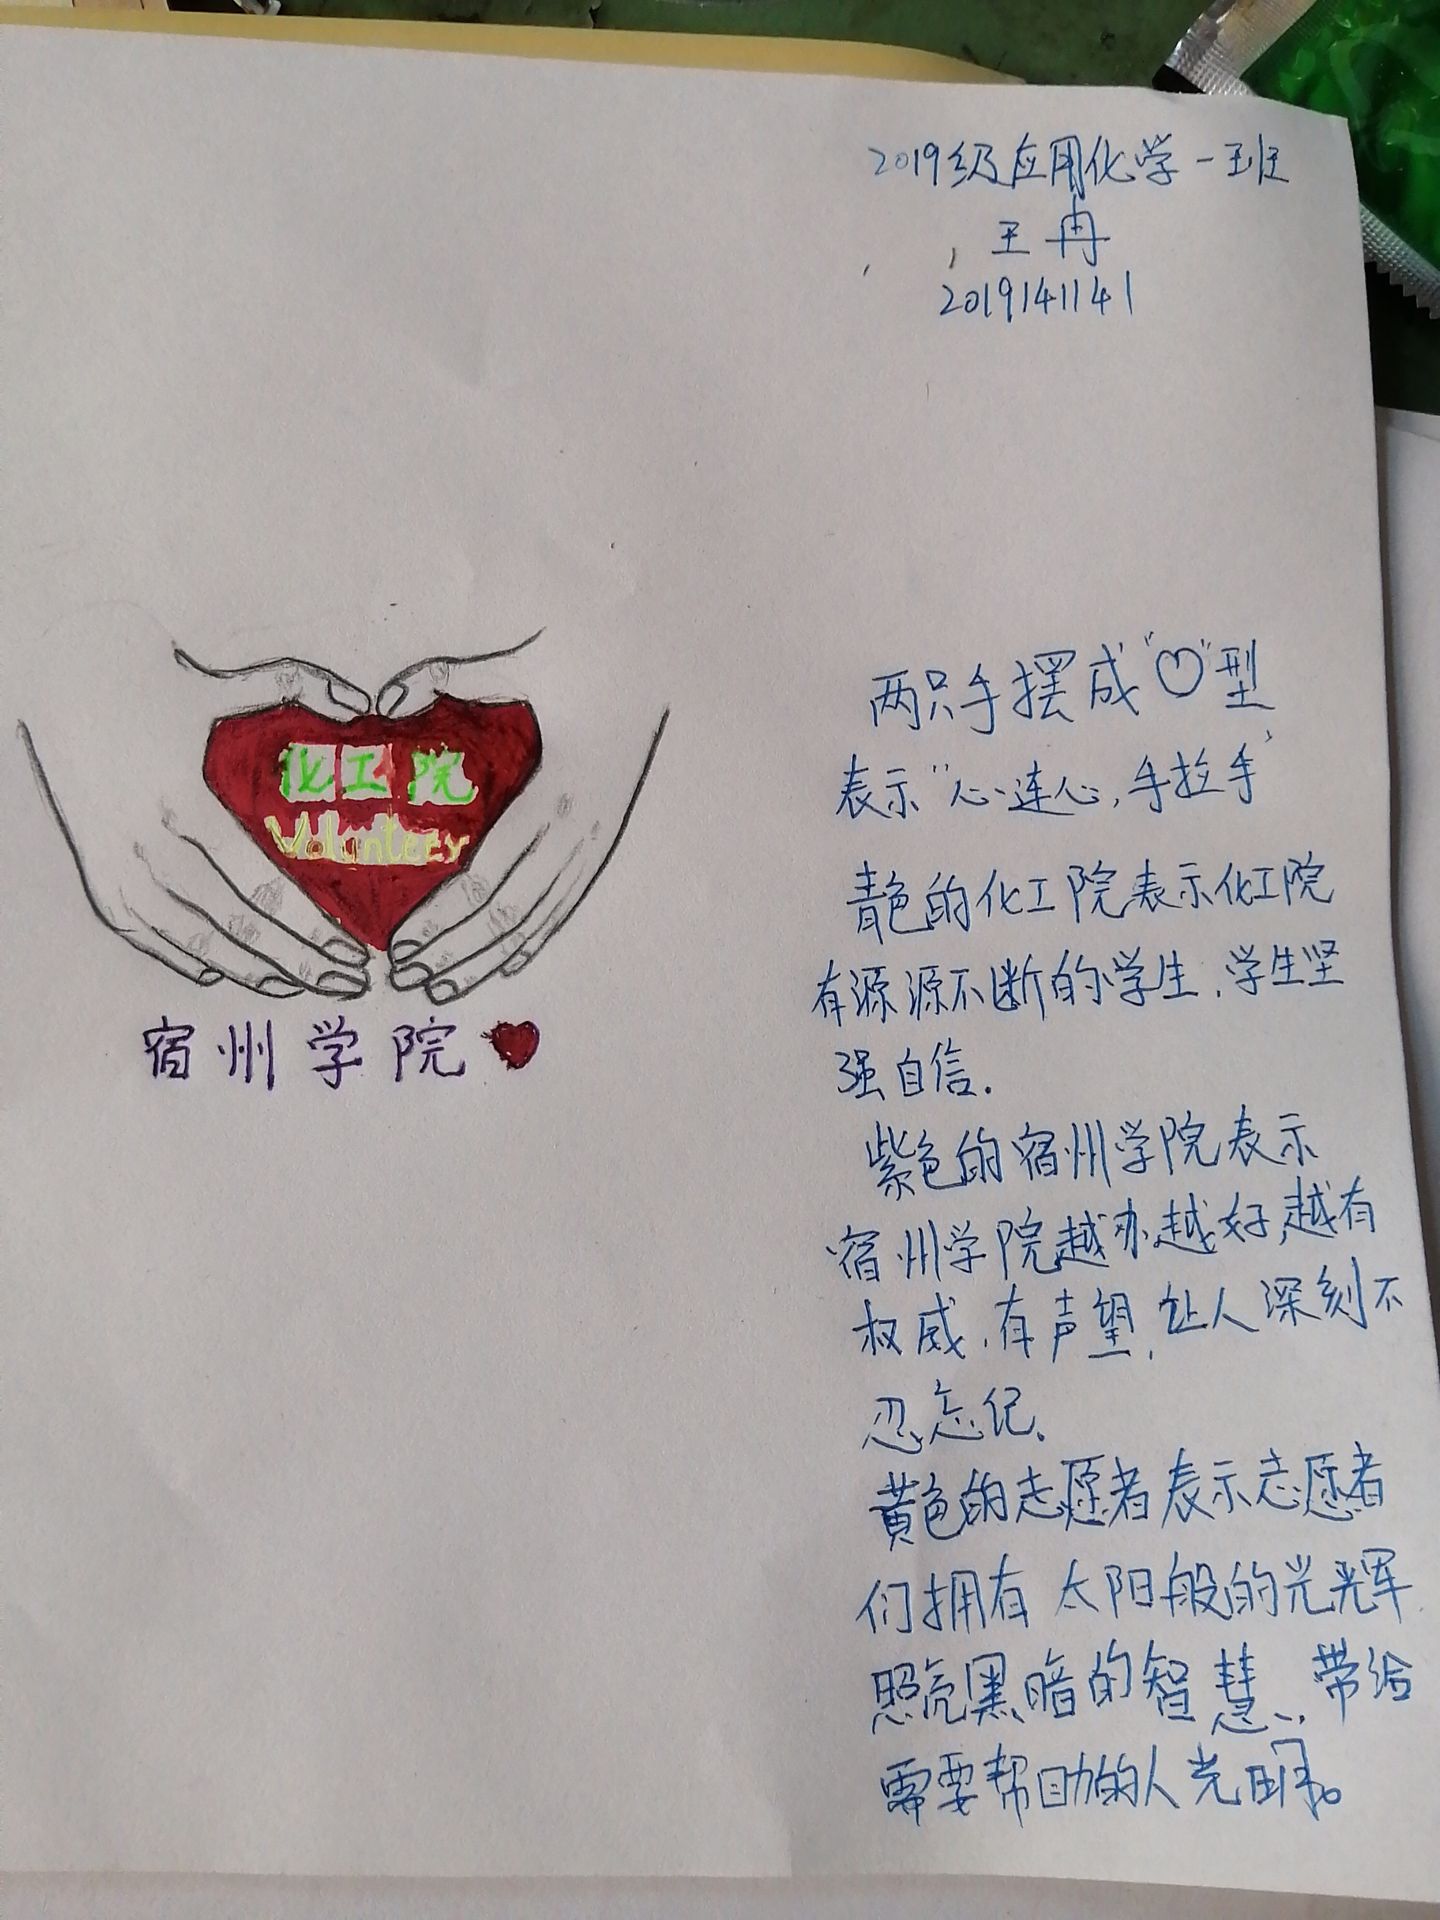 2019级应用化学一班
王冉
2019141141
化工院
Volunteer
宿州学院
两只手摆成“♡”型
表示“心连心,手拉手”
青色的化工院表示化工院
有源源不断的学生,学生坚
强自信.
紫色的宿州学院表示
宿州学院越办越好,越有
权威,有声望,让人深刻不
忍忘记。
黄色的志愿者表示志愿者
们拥有太阳般的光辉
照亮黑暗的智慧,带给
需要帮助的人光明。